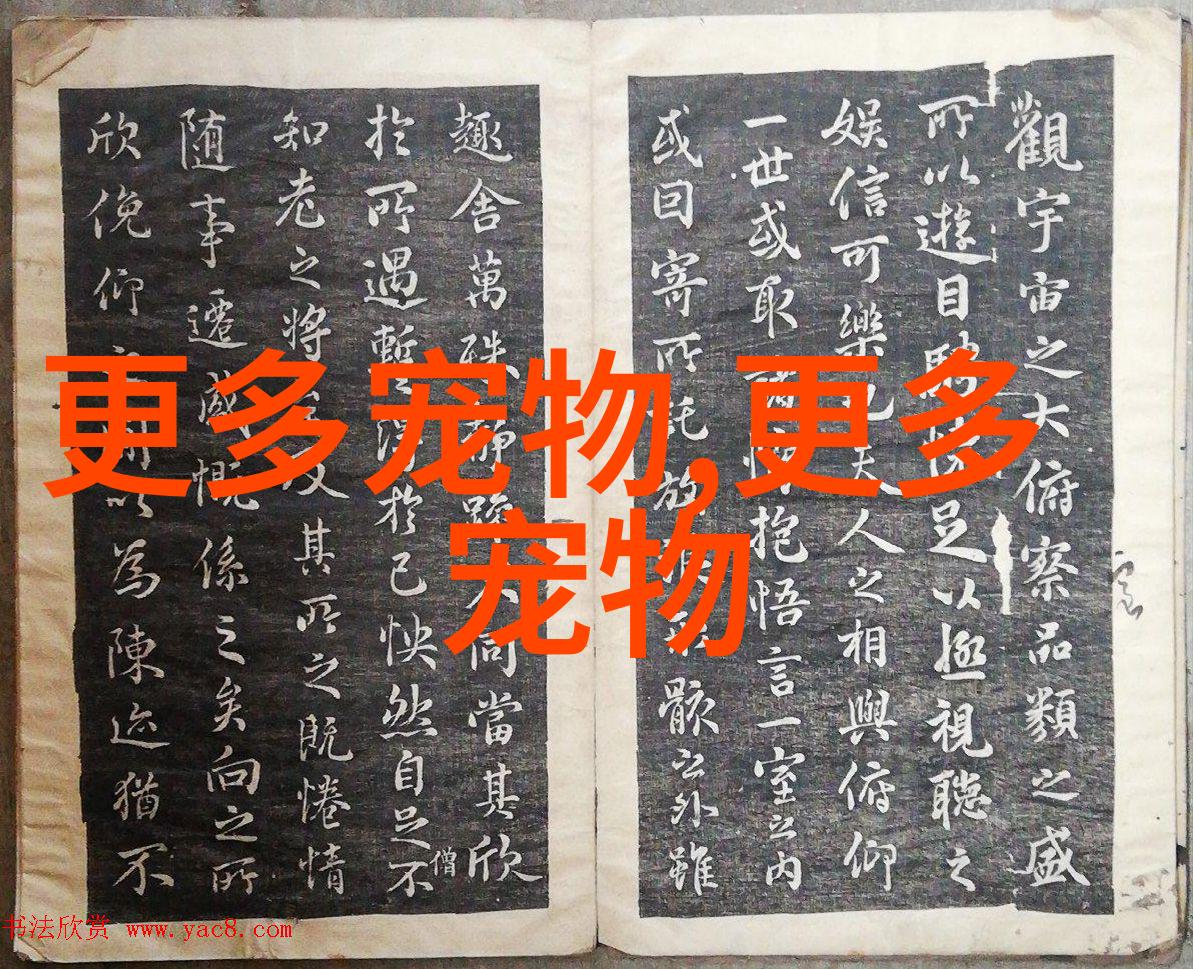 觀宇宙之大俯察品類之盛
所以遊目足以極視聽之
娛信可樂也夫人之相與俯仰
一世或取抱悟言一室之内
或因寄所託放骸之外雖
趣舍萬殊同當其欣
於所遇暫得於己怏然自足不
僧
知老之將及其所之既惓情
随事遷感慨係之矣向之所
欣俛仰以為陳迹猶不
更多宠物,更多
宠物
书法欣赏 www.yac8.com